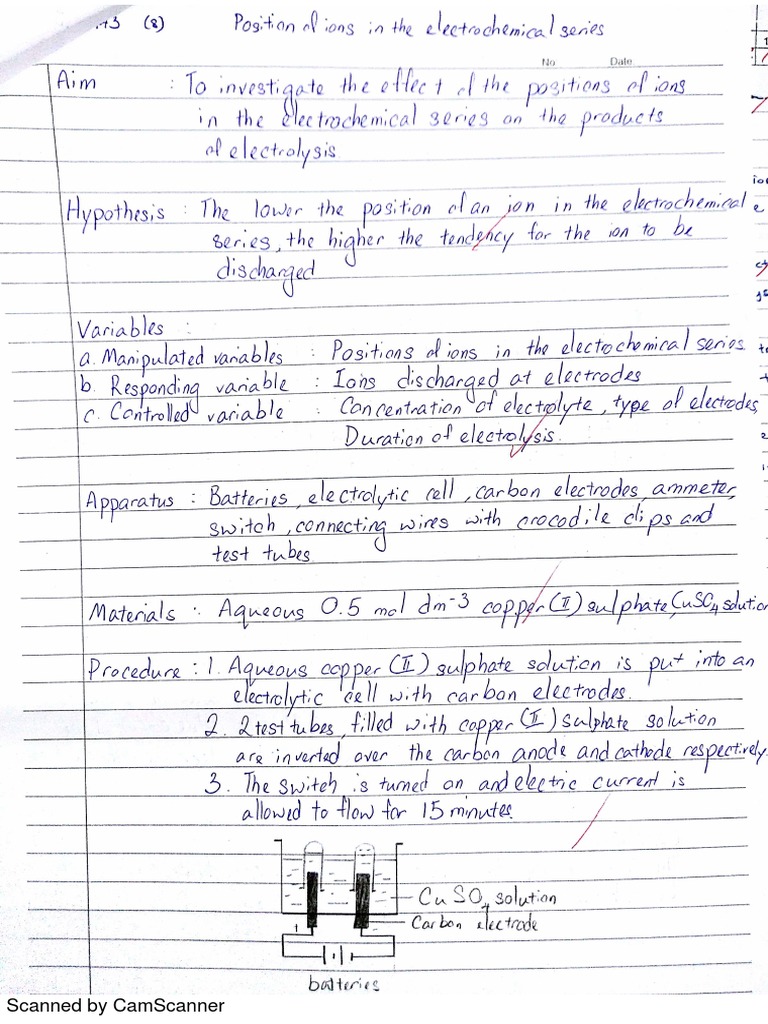 (8) Position of ions in the electrochemical series
No Date
Aim : To investigate the effect of the positions of ions
in the electrochemical series on the products
of electrolysis
Hypothesis : The lower the position of an ion in the electrochemical
series, the higher the tendency for the ion to be
discharged
Variables :
a. Manipulated variables : Positions of ions in the electochemical series
b. Responding variable : Ions discharged at electrodes
c. Controlled variable : Concentration of electrolyte, type of electrodes
Duration of electrolysis.
Apparatus : Batteries, electrolytic cell, carbon electrodes, ammeter,
switch, connecting wires with crocodile clips and
test tubes
Materials : Aqueous 0.5 mol dm-3 copper (II) sulphate, CuSO4 solution
Procedure : 1. Aqueous copper (II) sulphate solution is put into an
electrolytic cell with carbon electrodes.
2. 2 test tubes, filled with copper (II) sulphate solution
are inverted over the carbon anode and cathode respectively.
3. The switch is turned on and electric current is
allowed to flow for 15 minutes.
CuSO4 solution
Carbon electrode
batteries
Scanned by CamScanner